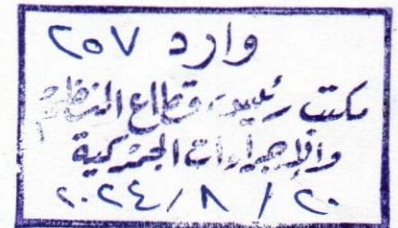 وارد ٢٥٧
مكتب رئيس قطاع النظم
والإجراءات الجمركية
٢٠ / ٨ / ٢٠٢٤